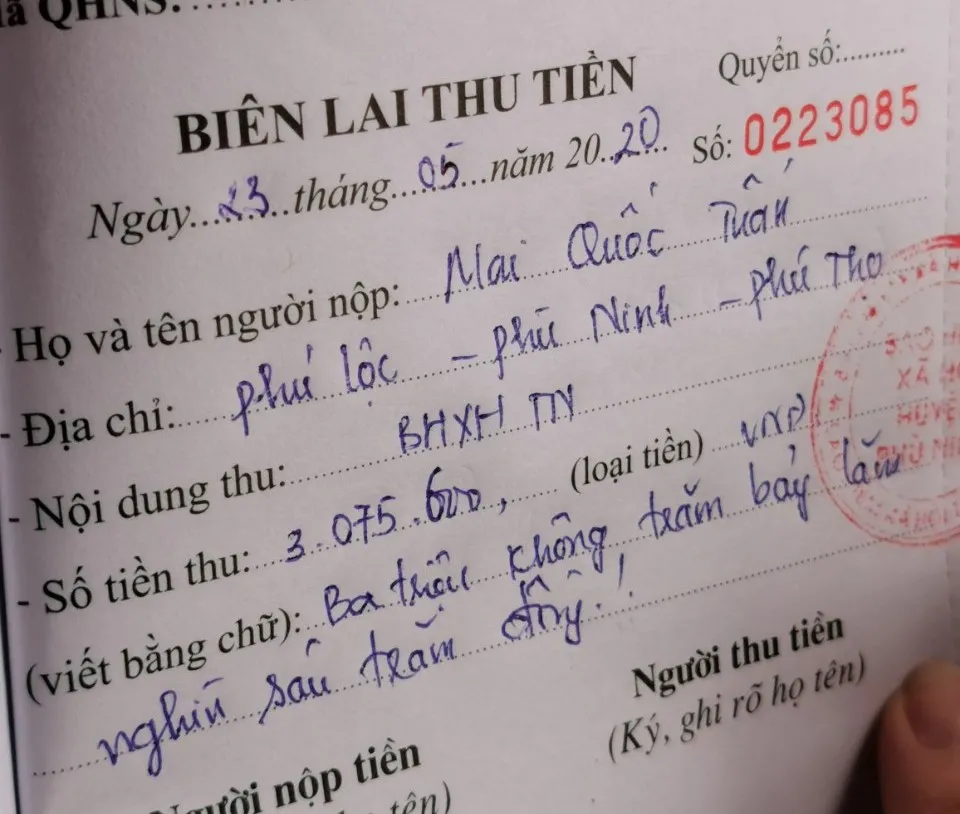 Mã QHNS:..........
Quyển số:..........
BIÊN LAI THU TIỀN
Số: 0223085
Ngày...23...tháng...05...năm 20...20...
- Họ và tên người nộp: Mai Quốc Tuấn
- Địa chỉ: phú lộc - phù Ninh - phú Thọ
- Nội dung thu: BHXH TN
- Số tiền thu: 3.075.600, (loại tiền) VNĐ
(viết bằng chữ): Ba triệu không trăm bảy lăm
nghìn sáu trăm đồng./
Người thu tiền
(Ký, ghi rõ họ tên)
Người nộp tiền
họ tên)
BẢO H
XÃ H
HUYỆ
PHÙ NI